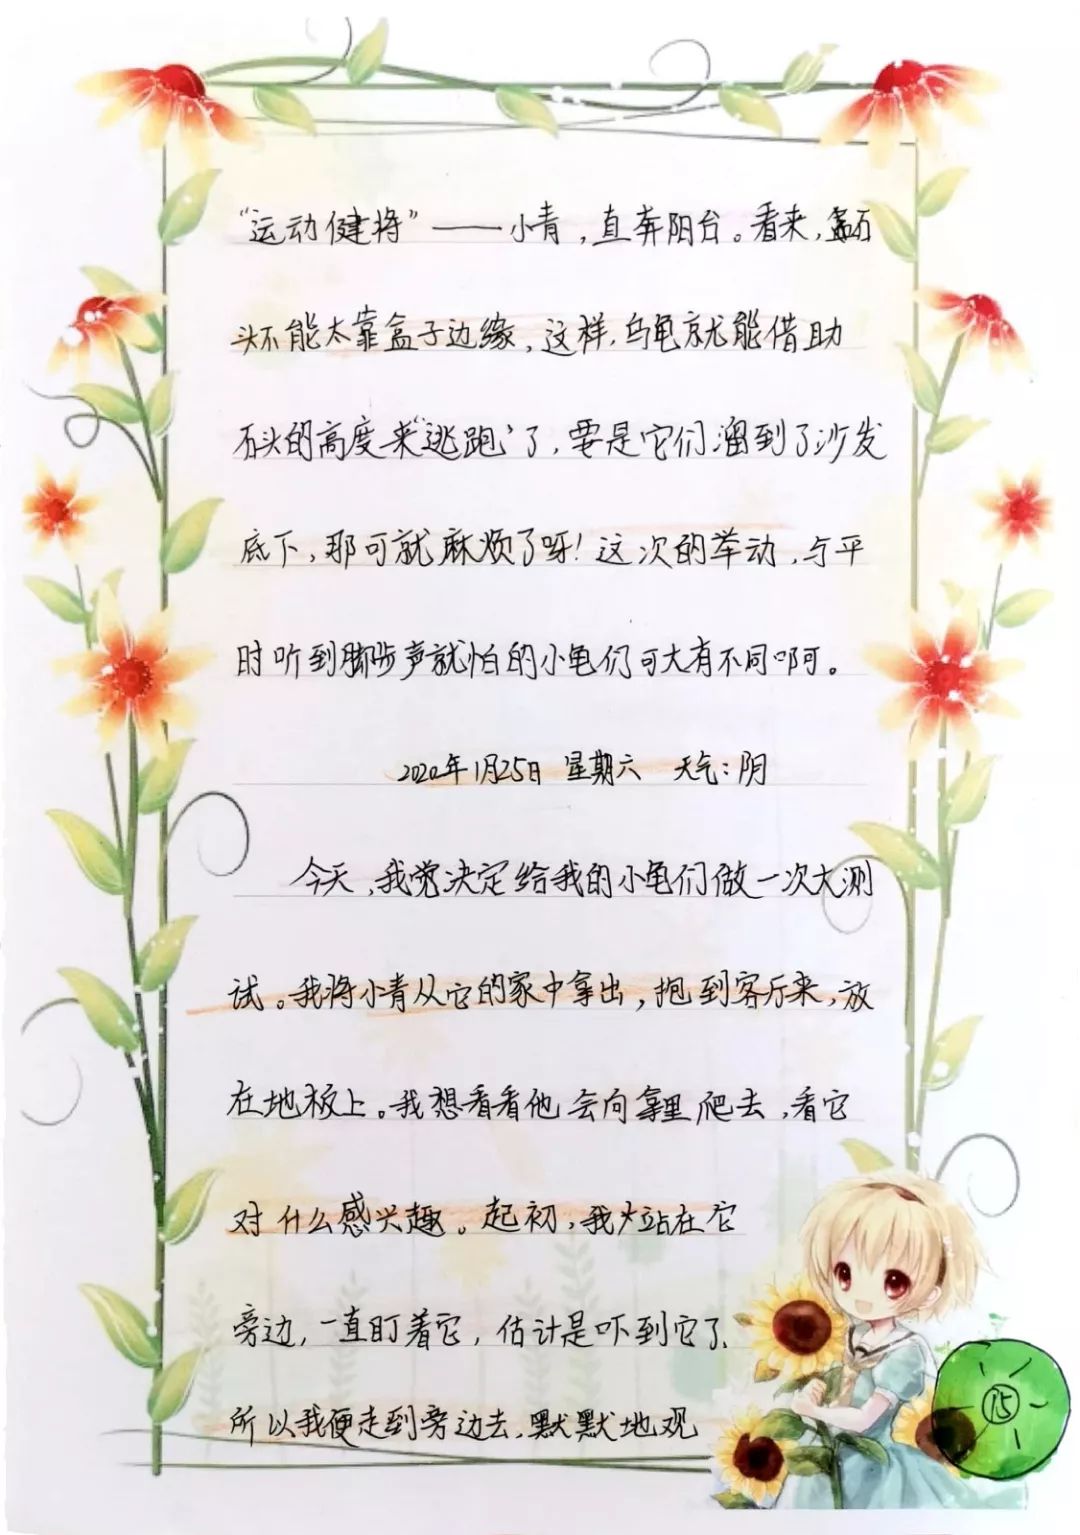 “运动健将”——小青，直奔阳台。看来，石
头不能太靠盒子边缘，这样，乌龟就能借助
石头的高度来“逃跑”了，要是它们溜到了沙发
底下，那可就麻烦了呀！这次的举动，与平
时听到脚步声就怕的小龟们可大有不同啊。
2020年1月25日 星期六 天气：阴
今天，我决定给我的小龟们做一次大测
试。我将小青从它的家中拿出，抱到客厅来，放
在地板上。我想看看他会向哪里爬去，看它
对什么感兴趣。起初，我站在它
旁边，一直盯着它，估计是吓到它了，
所以我便走到旁边去，默默地观
15